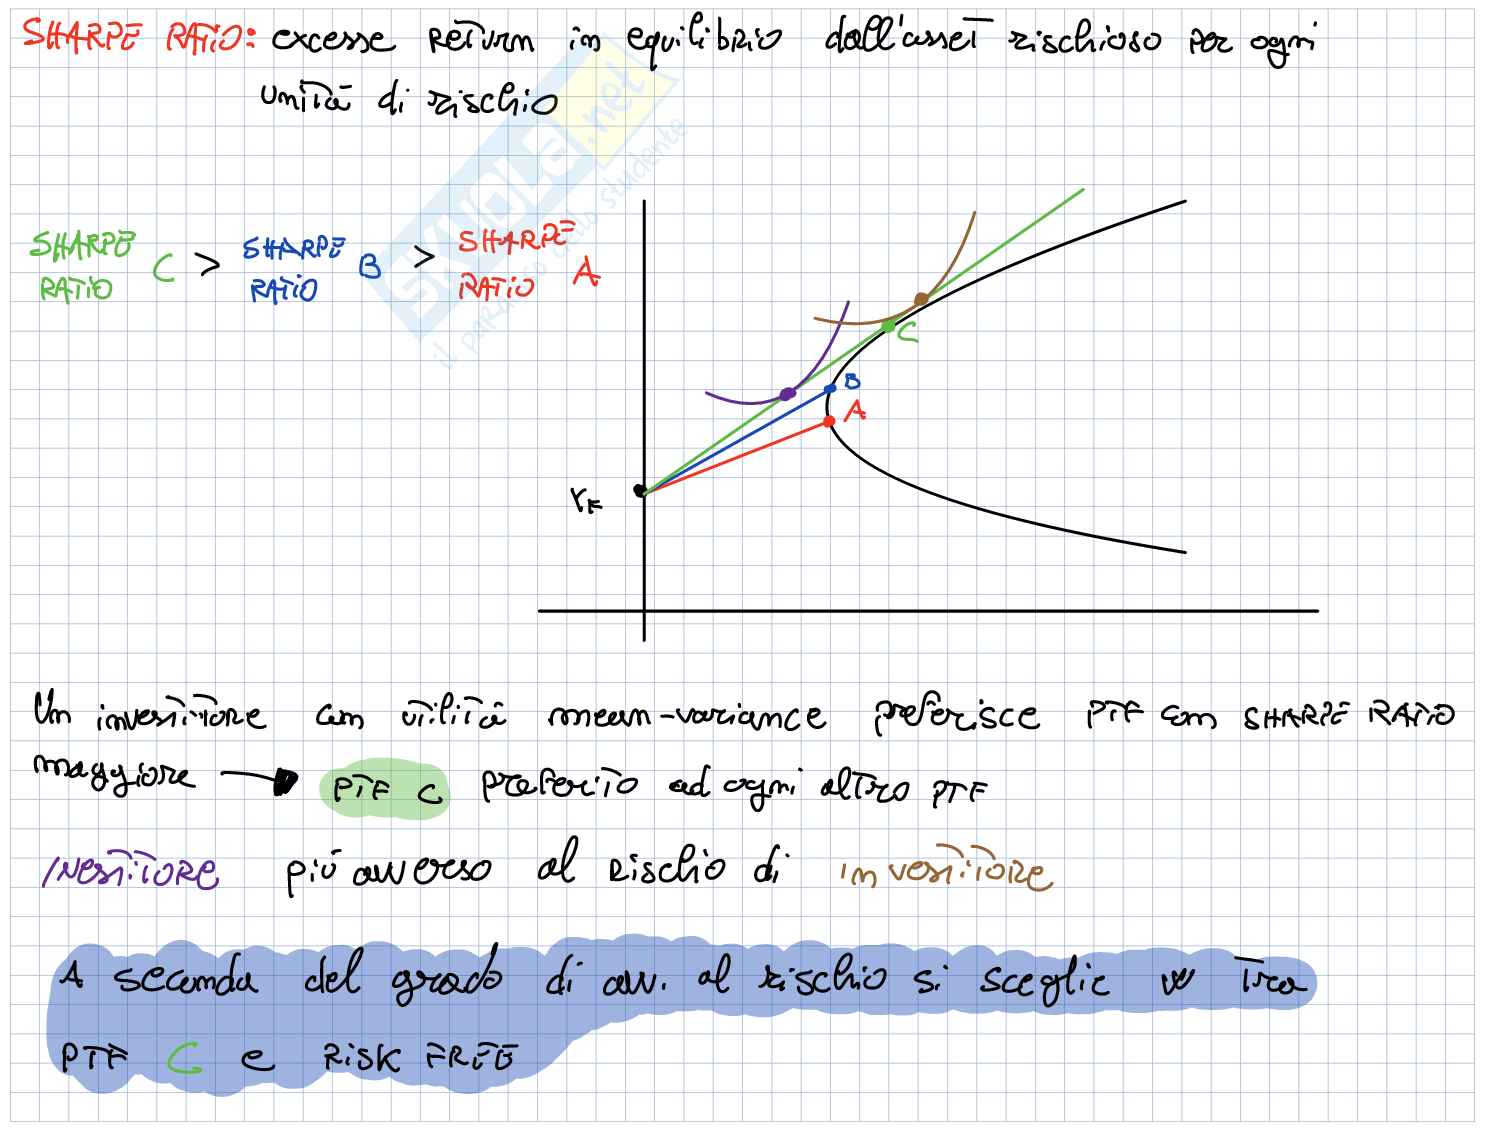 SHARPE RATIO: excesse return in equilibrio dall'asset rischioso per ogni
unità di rischio
SHARPE RATIO C > SHARPE RATIO B > SHARPE RATIO A
SKUOLA.net
il paradiso dello studente
C
B
A
rF
Un investitore con utilità mean-variance preferisce PTF con SHARPE RATIO
maggiore → PTF C preferito ad ogni altro PTF
INESTITORE più avverso al rischio di investitore
A seconda del grado di avv. al rischio si sceglie w tra
PTF C e RISK FREE